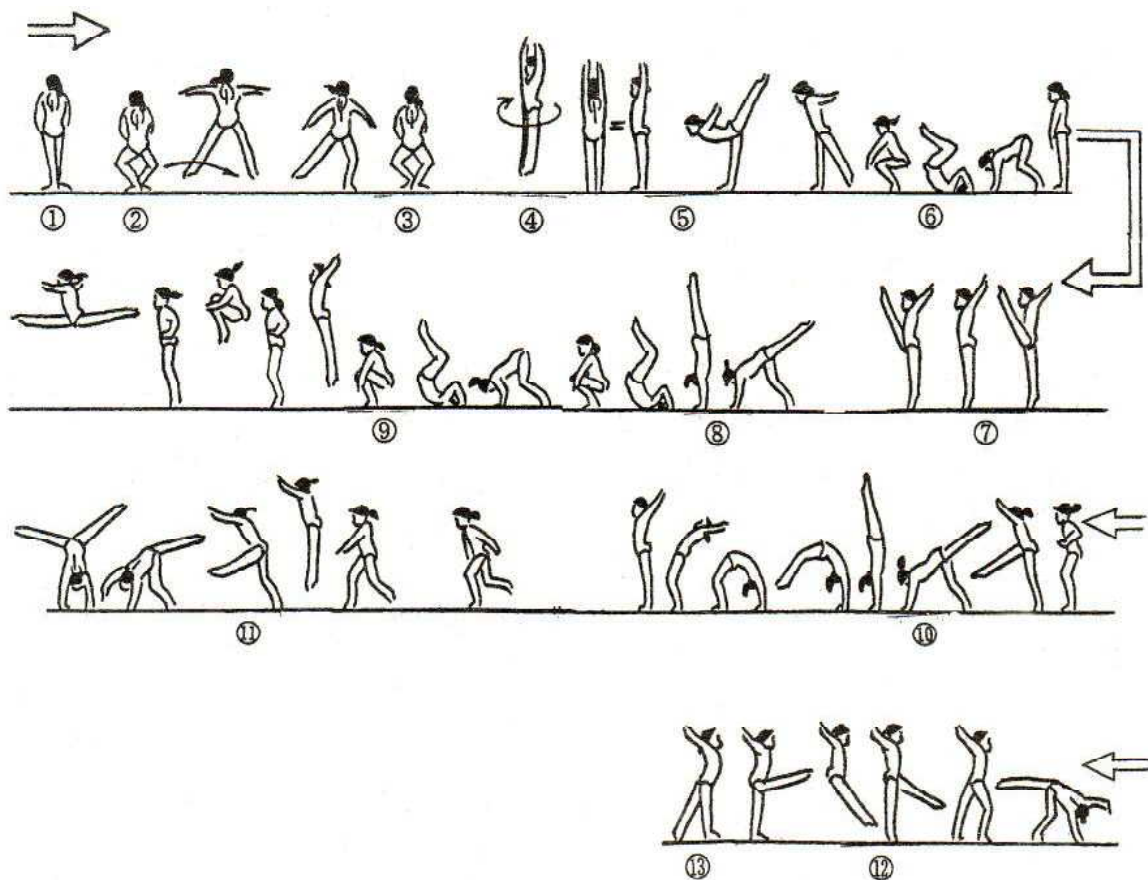 ① ② ③ ④ ⑤ ⑥
⑨ ⑧ ⑦
⑪ ⑩
⑬ ⑫